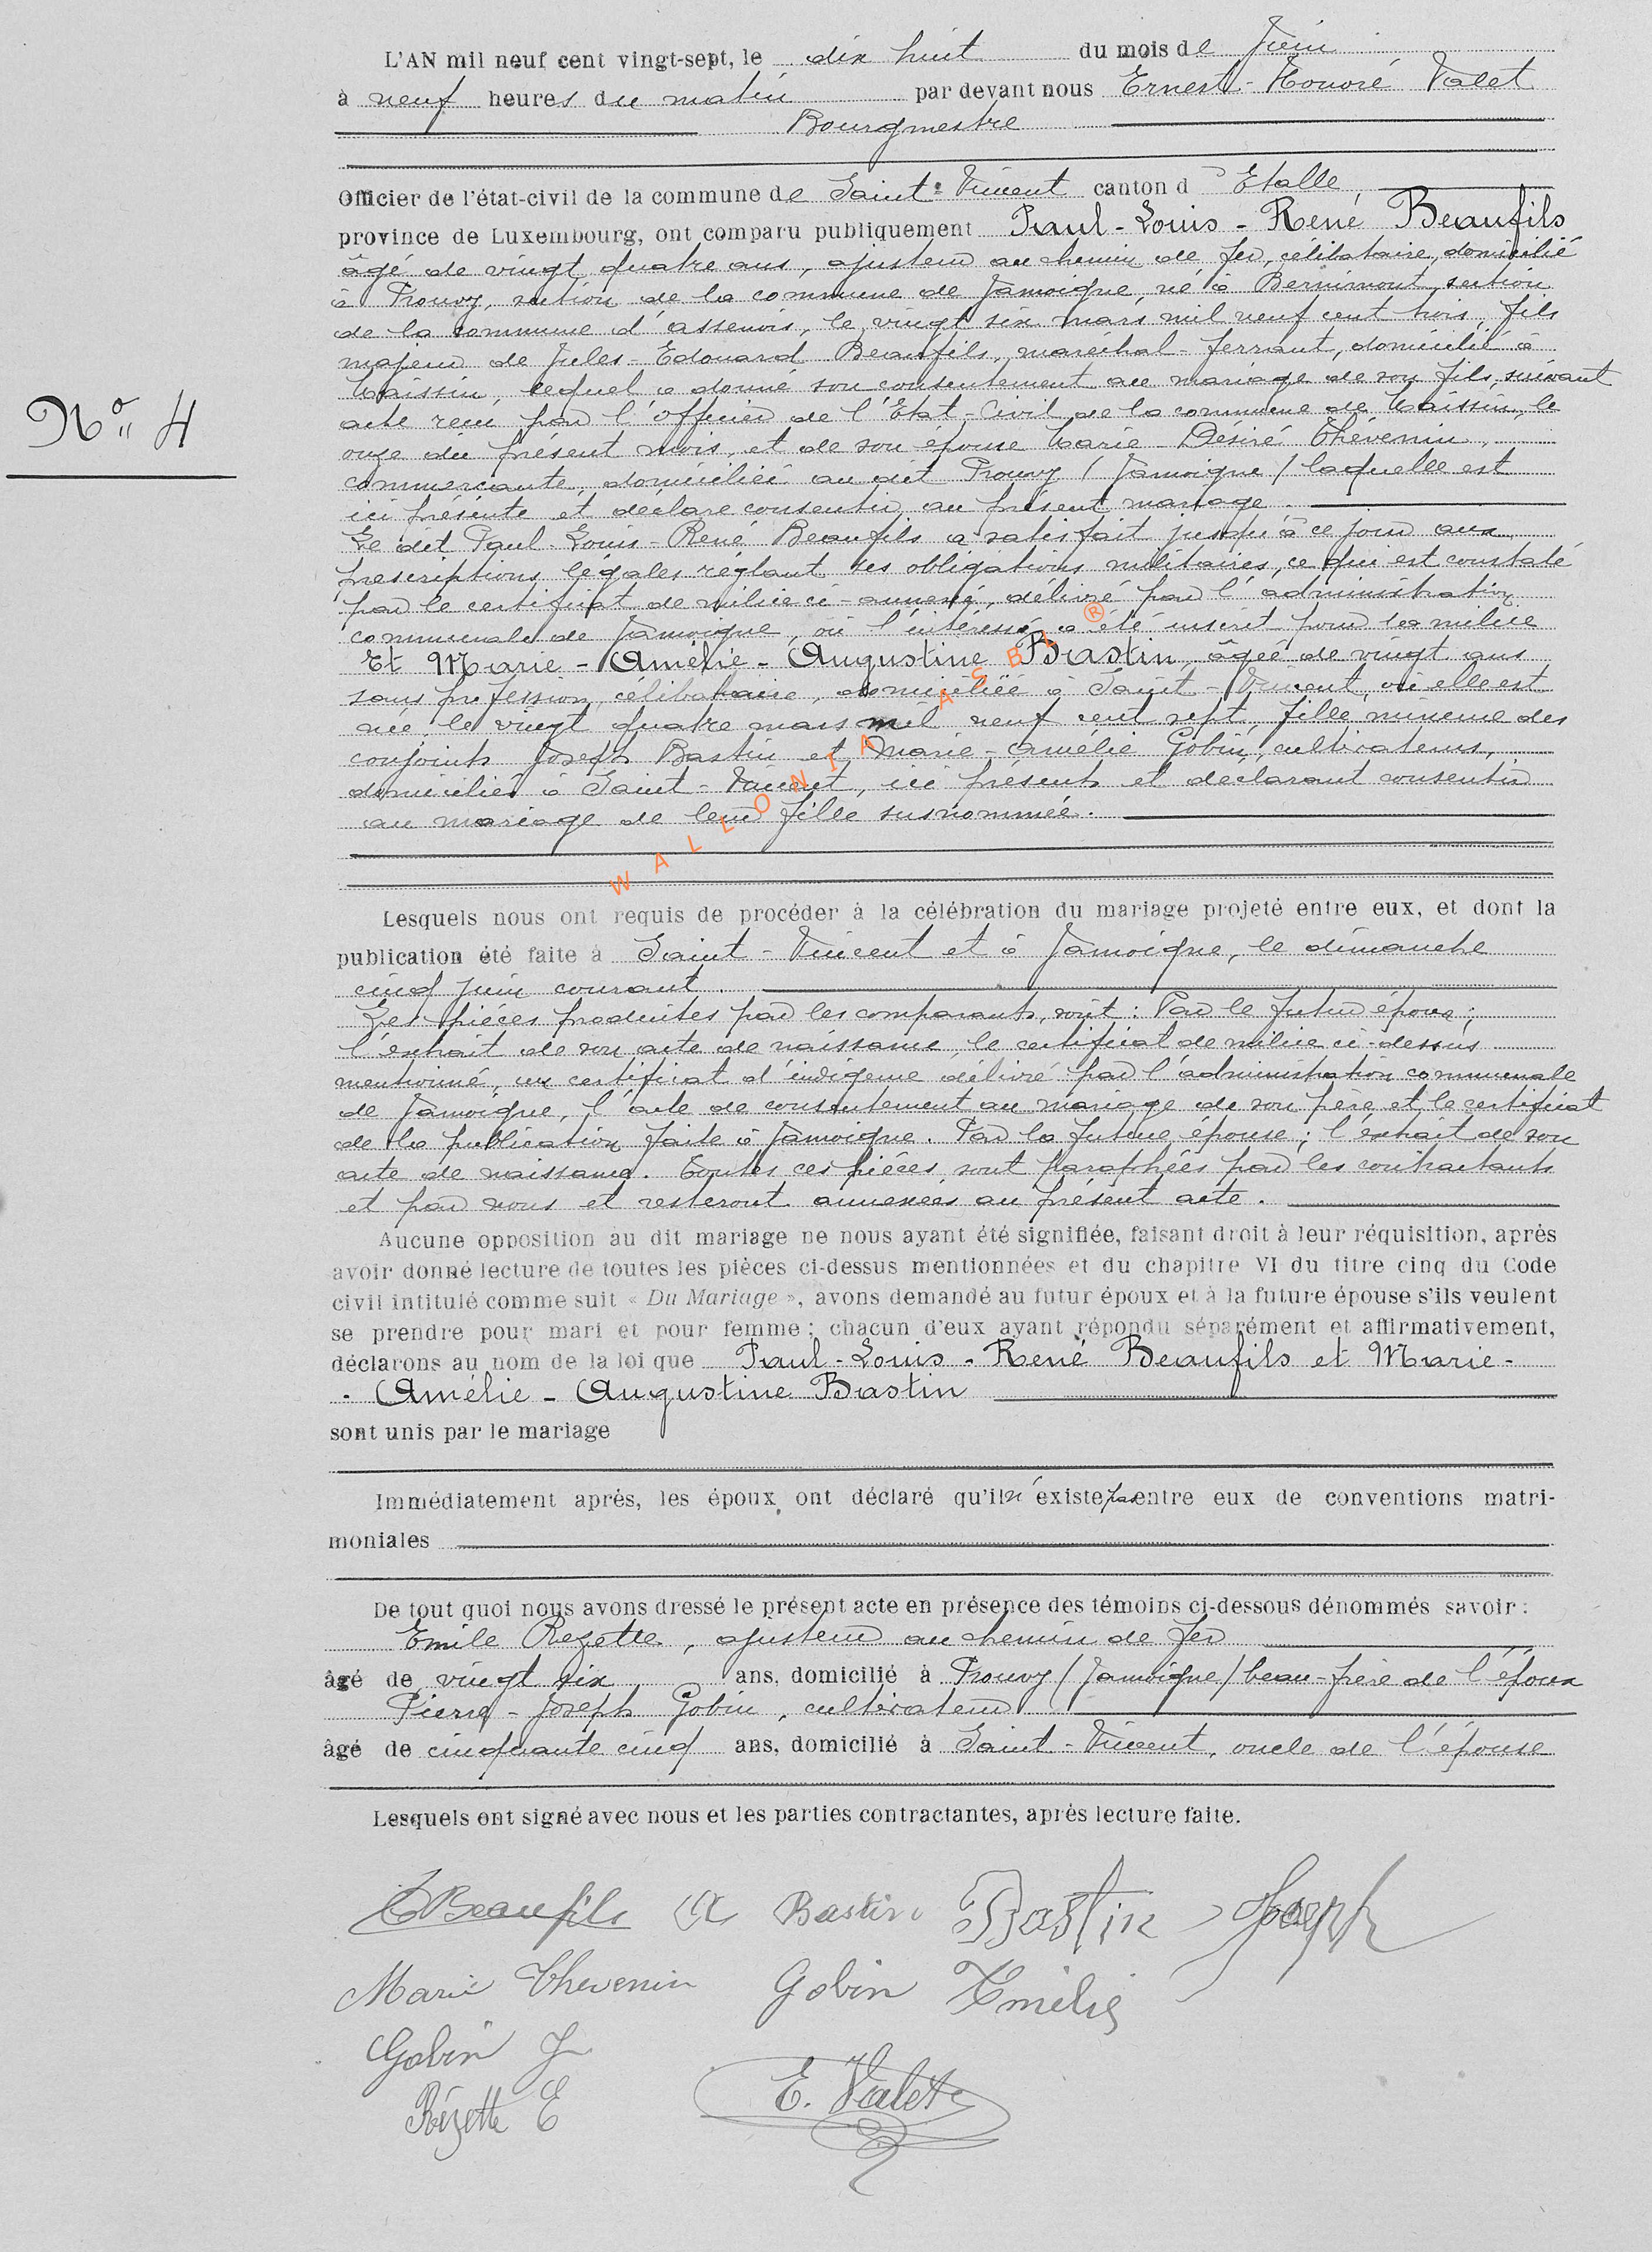 L'AN mil neuf cent vingt-sept, le dix huit du mois de Juin
à neuf heures du matin par devant nous Ernest-Honoré Valet
Bourgmestre
Officier de l'état-civil de la commune de Saint-Vincent canton d'Etalle
province de Luxembourg, ont comparu publiquement Paul-Louis-René Beaufils
âgé de vingt quatre ans, ajusteur au chemin de fer, célibataire, domicilié
à Prouvy, section de la commune de Jamoigne, né à Bernimont, section
de la commune d'assenois, le vingt six mars mil neuf cent trois, fils
majeur de Jules-Edouard Beaufils, marechal-ferrant, domicilié à
Maissin, lequel a donné son consentement au mariage de son fils, suivant
acte reçu par l'officier de l'Etat-Civil de la commune de Maissin, le
onze du présent mois, et de son épouse Marie-Désiré Thévenin,
commerçante, domiciliée au dit Prouvy (Jamoigne) laquelle est
ici présente et déclare consentir au présent mariage.
Le dit Paul-Louis-René Beaufils a satisfait jusqu'à ce jour aux
prescriptions légales réglant ses obligations militaires, ce qui est constaté
par le certificat de milice ci-annexé, délivré par l'administration
communale de Jamoigne, où l'intéressé a été inscrit pour la milice
Et Marie-Amélie-Augustine Bastin, âgée de vingt ans
sans profession, célibataire, domiciliée à Saint-Vincent, où elle est
née, le vingt quatre mars mil neuf cent sept, fille mineure des
conjoints Joseph Bastin et Marie-Amélie Gobin, cultivateurs,
domiciliés à Saint-Vincent, ici présents et déclarant consentir
au mariage de leur fille susnommée.
WALLONIA ASBL ®
Nº 4
Lesquels nous ont requis de procéder à la célébration du mariage projeté entre eux, et dont la
publication été faite à Saint-Vincent et à Jamoigne, le dimanche
cinq juin courant.
Les pièces produites par les comparants, sont: Par le futur époux;
l'extrait de son acte de naissance, le certificat de milice ci-dessus
mentionné, un certificat d'indigene délivré par l'administration communale
de Jamoigne, l'acte de consentement au mariage de son père et le certificat
de la publication faite à Jamoigne. Par la future épouse; l'extrait de son
acte de naissance. Toutes ces pièces sont paraphées par les contractants
et par nous et resteront annexées au présent acte.
Aucune opposition au dit mariage ne nous ayant été signifiée, faisant droit à leur réquisition, après
avoir donné lecture de toutes les pièces ci-dessus mentionnées et du chapitre VI du titre cinq du Code
civil intitulé comme suit « Du Mariage », avons demandé au futur époux et à la future épouse s'ils veulent
se prendre pour mari et pour femme; chacun d'eux ayant répondu séparément et affirmativement,
déclarons au nom de la loi que Paul-Louis-René Beaufils et Marie-
-Amélie-Augustine Bastin
sont unis par le mariage
Immédiatement après, les époux ont déclaré qu'il n'existe pas entre eux de conventions matri-
moniales
De tout quoi nous avons dressé le présent acte en présence des témoins ci-dessous dénommés savoir:
Emile Rezette, ajusteur au chemin de fer
âgé de vingt six ans, domicilié à Prouvy (Jamoigne) beau-frère de l'époux
Pierre-Joseph Gobin, cultivateur
âgé de cinquante cinq ans, domicilié à Saint-Vincent, oncle de l'épouse
Lesquels ont signé avec nous et les parties contractantes, après lecture faite.
Beaufils A Bastin Bastin Joseph
Marie Thevenin Gobin Amélie
Gobin J
Rézette E E. Valet